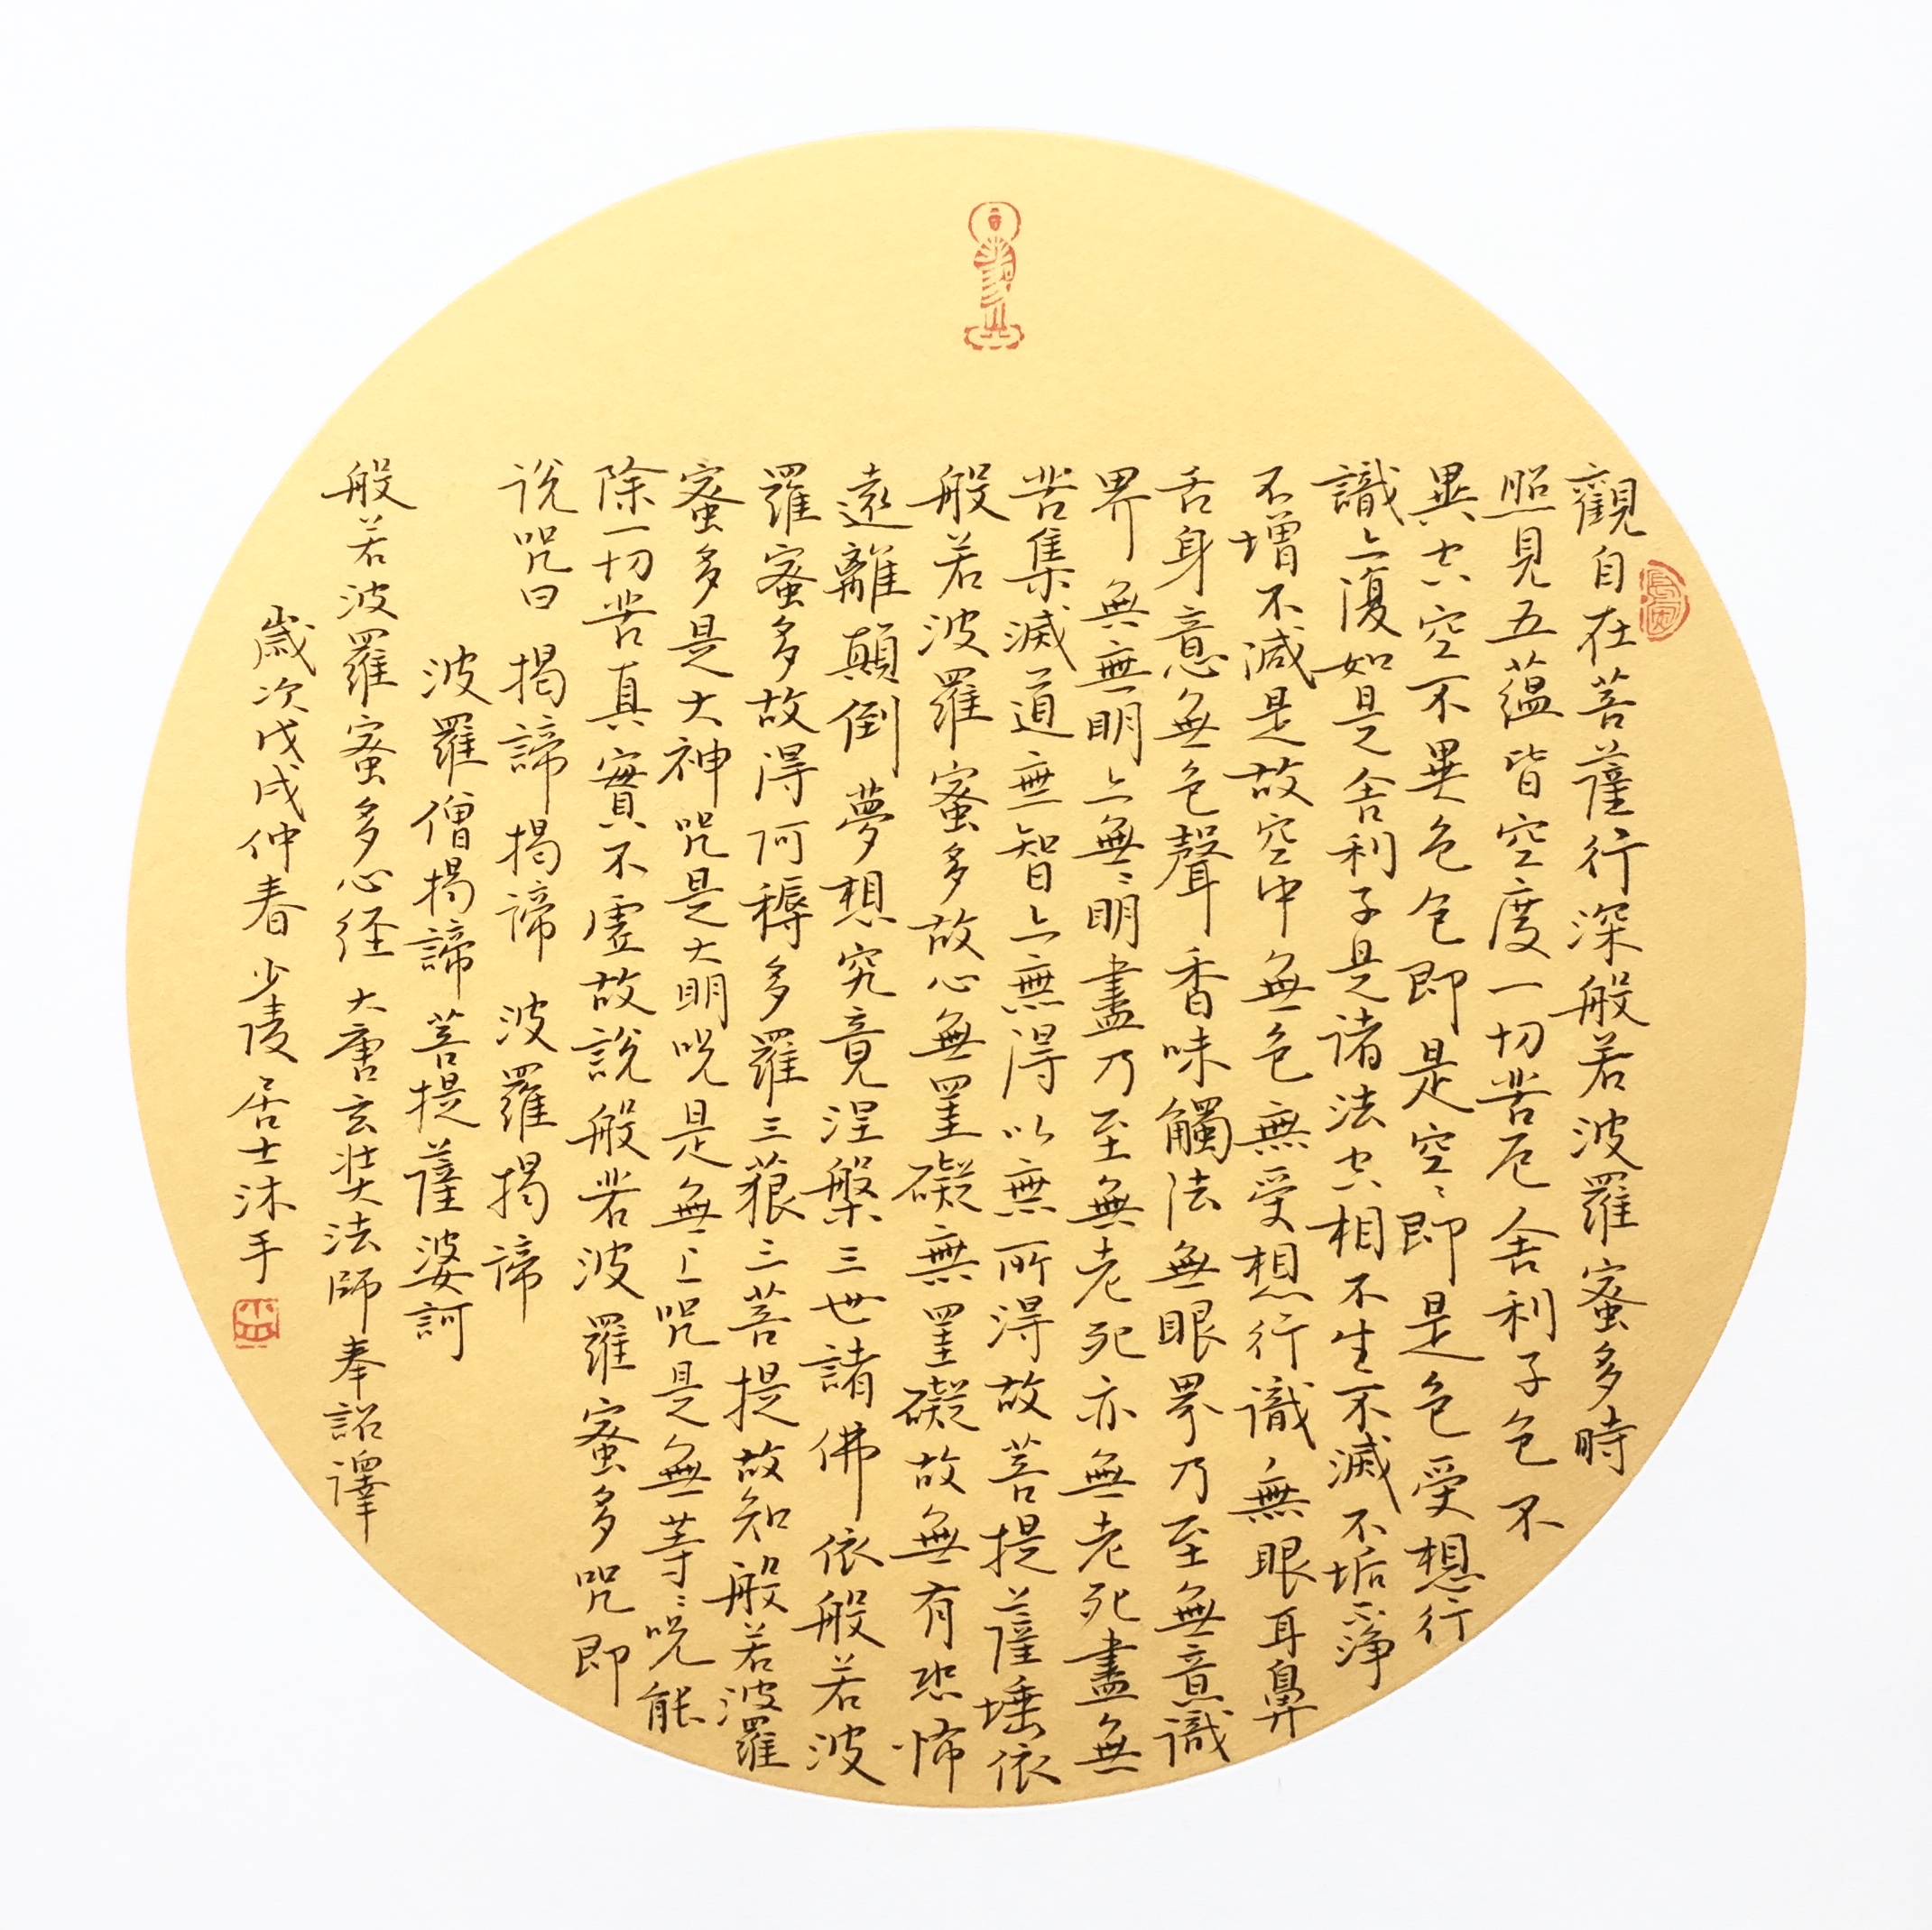 觀自在菩薩行深般若波羅蜜多時
照見五蘊皆空度一切苦厄舍利子色不
異空空不異色色即是空〻即是色受想行
識亦復如是舍利子是諸法空相不生不滅不垢不淨
不增不減是故空中無色無受想行識無眼耳鼻
舌身意無色聲香味觸法無眼界乃至無意識
界無無明亦無〻明盡乃至無老死亦無老死盡無
苦集滅道無智亦無得以無所得故菩提薩埵依
般若波羅蜜多故心無罣礙無罣礙故無有恐怖
遠離顛倒夢想究竟涅槃三世諸佛依般若波
羅蜜多故得阿耨多羅三藐三菩提故知般若波羅
蜜多是大神咒是大明咒是無上咒是無等〻咒能
除一切苦真實不虛故說般若波羅蜜多咒即
說咒曰 揭諦揭諦 波羅揭諦
波羅僧揭諦 菩提薩婆訶
般若波羅蜜多心經 大唐玄奘法師奉詔譯
歲次戊戌仲春少陵居士沐手